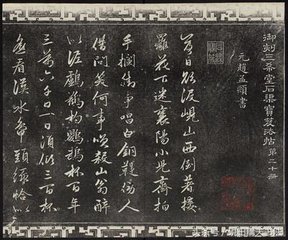 御刻三希堂石渠寶笈法帖 第二十册
元趙孟頫書
落日欲没峴山西倒著接
䍦花下迷襄陽小兒齊拍
手攔街爭唱白銅鞮傍人
借問笑何事笑殺山翁醉
似泥鸕鷀杓鸚鵡杯百年
三萬六千日一日須傾三百杯
遙看漢水鴨頭綠恰似